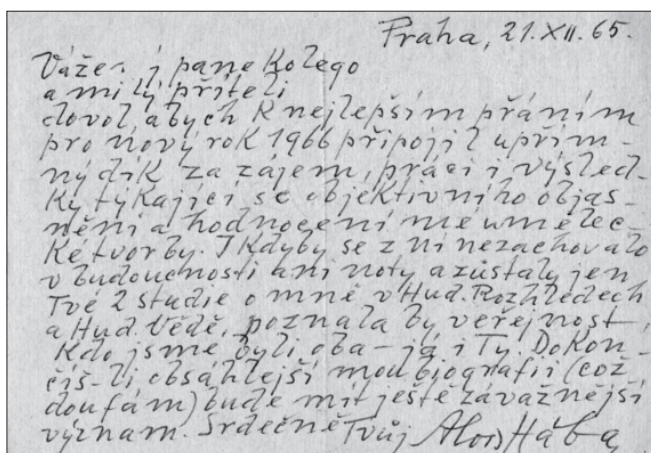 Praha, 21. XII. 65.
Vážený pane kolego
a milý příteli
dovol abych k nejlepším přáním
pro nový rok 1966 připojil upřím-
ný dík za zájem, práci i výsled-
ky týkající se objektivního objas-
nění a hodnocení mé umělec-
ké tvorby. I kdyby se z ní nezachovalo
v budoucnosti ani noty a zůstaly jen
Tvé 2 studie o mně v Hud. Rozhledech
a Hud. Vědě, poznala by veřejnost,
kdo jsme byli oba – já i Ty. Dokon-
číš-li obsáhlejší mou biografii (což
doufám) bude mít ještě závažnější
význam. Srdečně Tvůj Alois Hába